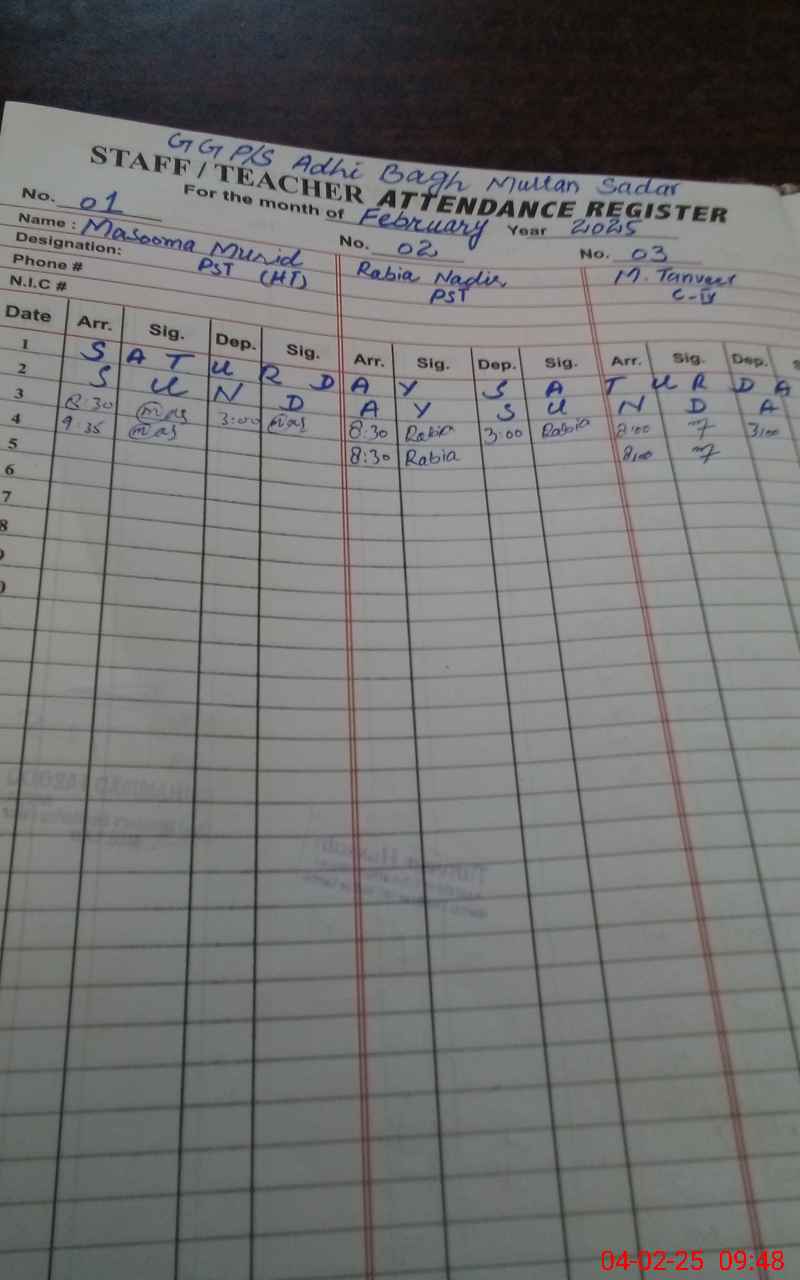 GGP/S Adhi Bagh Multan Sadar
STAFF / TEACHER ATTENDANCE REGISTER
For the month of February Year 2025
No. 01 No. 02 No. 03
Name : Masooma Murid Rabia Nadir M. Tanveer
Designation: PST (HT) PST C-IV
Phone #
N.I.C #
Date Arr. Sig. Dep. Sig. Arr. Sig. Dep. Sig. Arr. Sig. Dep. S
1 S A T U R D A Y S A T U R D A
2 S U N D A Y S U N D A
3 8:30 mas 3:00 mas 8:30 Rabia 3:00 Rabia 8:00 3:00
4 9:35 mas 8:30 Rabia 8:00
5
6
7
8
04-02-25 09:48